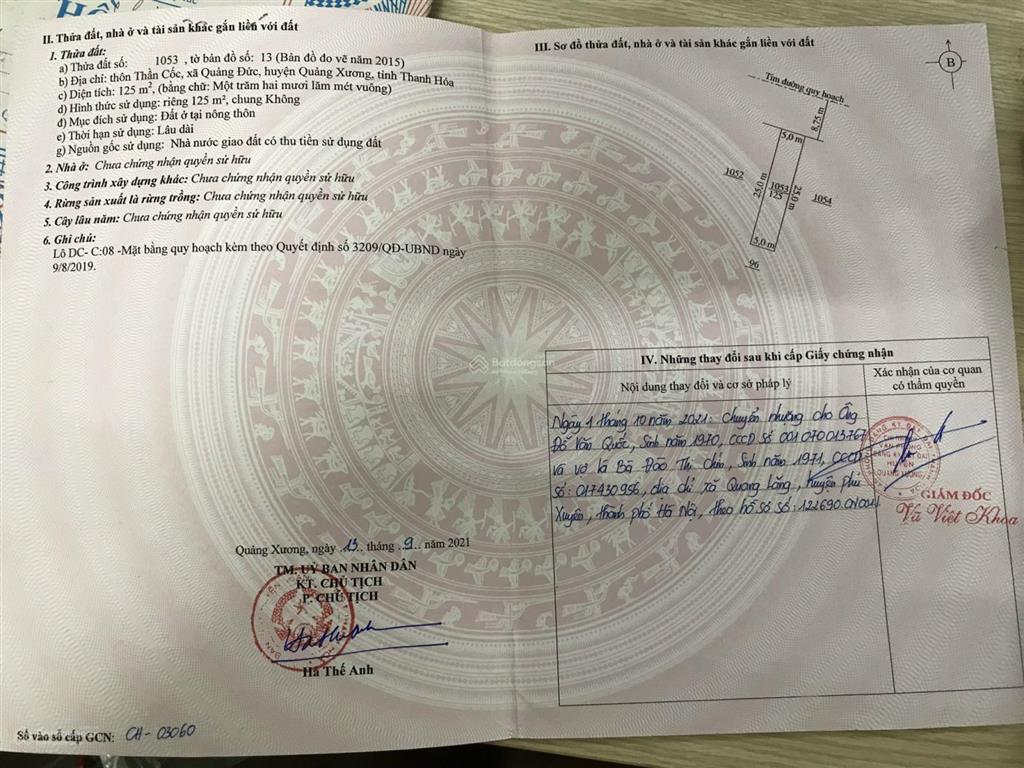 II. Thửa đất, nhà ở và tài sản khác gắn liền với đất
1. Thửa đất:
a) Thửa đất số: 1053 , tờ bản đồ số: 13 (Bản đồ đo vẽ năm 2015)
b) Địa chỉ: thôn Thần Cốc, xã Quảng Đức, huyện Quảng Xương, tỉnh Thanh Hóa
c) Diện tích: 125 m², (bằng chữ: Một trăm hai mươi lăm mét vuông)
d) Hình thức sử dụng: riêng 125 m², chung Không
đ) Mục đích sử dụng: Đất ở tại nông thôn
e) Thời hạn sử dụng: Lâu dài
g) Nguồn gốc sử dụng: Nhà nước giao đất có thu tiền sử dụng đất
2. Nhà ở: Chưa chứng nhận quyền sở hữu
3. Công trình xây dựng khác: Chưa chứng nhận quyền sở hữu
4. Rừng sản xuất là rừng trồng: Chưa chứng nhận quyền sở hữu
5. Cây lâu năm: Chưa chứng nhận quyền sở hữu
6. Ghi chú:
Lô DC- C:08 -Mặt bằng quy hoạch kèm theo Quyết định số 3209/QĐ-UBND ngày
9/8/2019.
Quảng Xương, ngày 13 tháng 9 năm 2021
TM. UỶ BAN NHÂN DÂN
KT. CHỦ TỊCH
P. CHỦ TỊCH
Hà Thế Anh
Số vào sổ cấp GCN: CH- 03060
III. Sơ đồ thửa đất, nhà ở và tài sản khác gắn liền với đất
B
Tim đường quy hoạch
8,75 m
5,0 m
1052
25,0 m
1053
125
25,0 m
1054
5,0 m
96
IV. Những thay đổi sau khi cấp Giấy chứng nhận
Nội dung thay đổi và cơ sở pháp lý
Xác nhận của cơ quan
có thẩm quyền
Ngày 1 tháng 10 năm 2021: Chuyển nhượng cho Ông
Đỗ Văn Quốc, Sinh năm 1970, CCCD số 001070013767
và vợ là Bà Đào Thị Chín, Sinh năm 1971, CCCD
số: 017430956, địa chỉ xã Quang Lãng, huyện Phú
Xuyên, thành phố Hà Nội, theo hồ sơ số: 122690.CN.001
GIÁM ĐỐC
Vũ Việt Khoa
Batdongsan